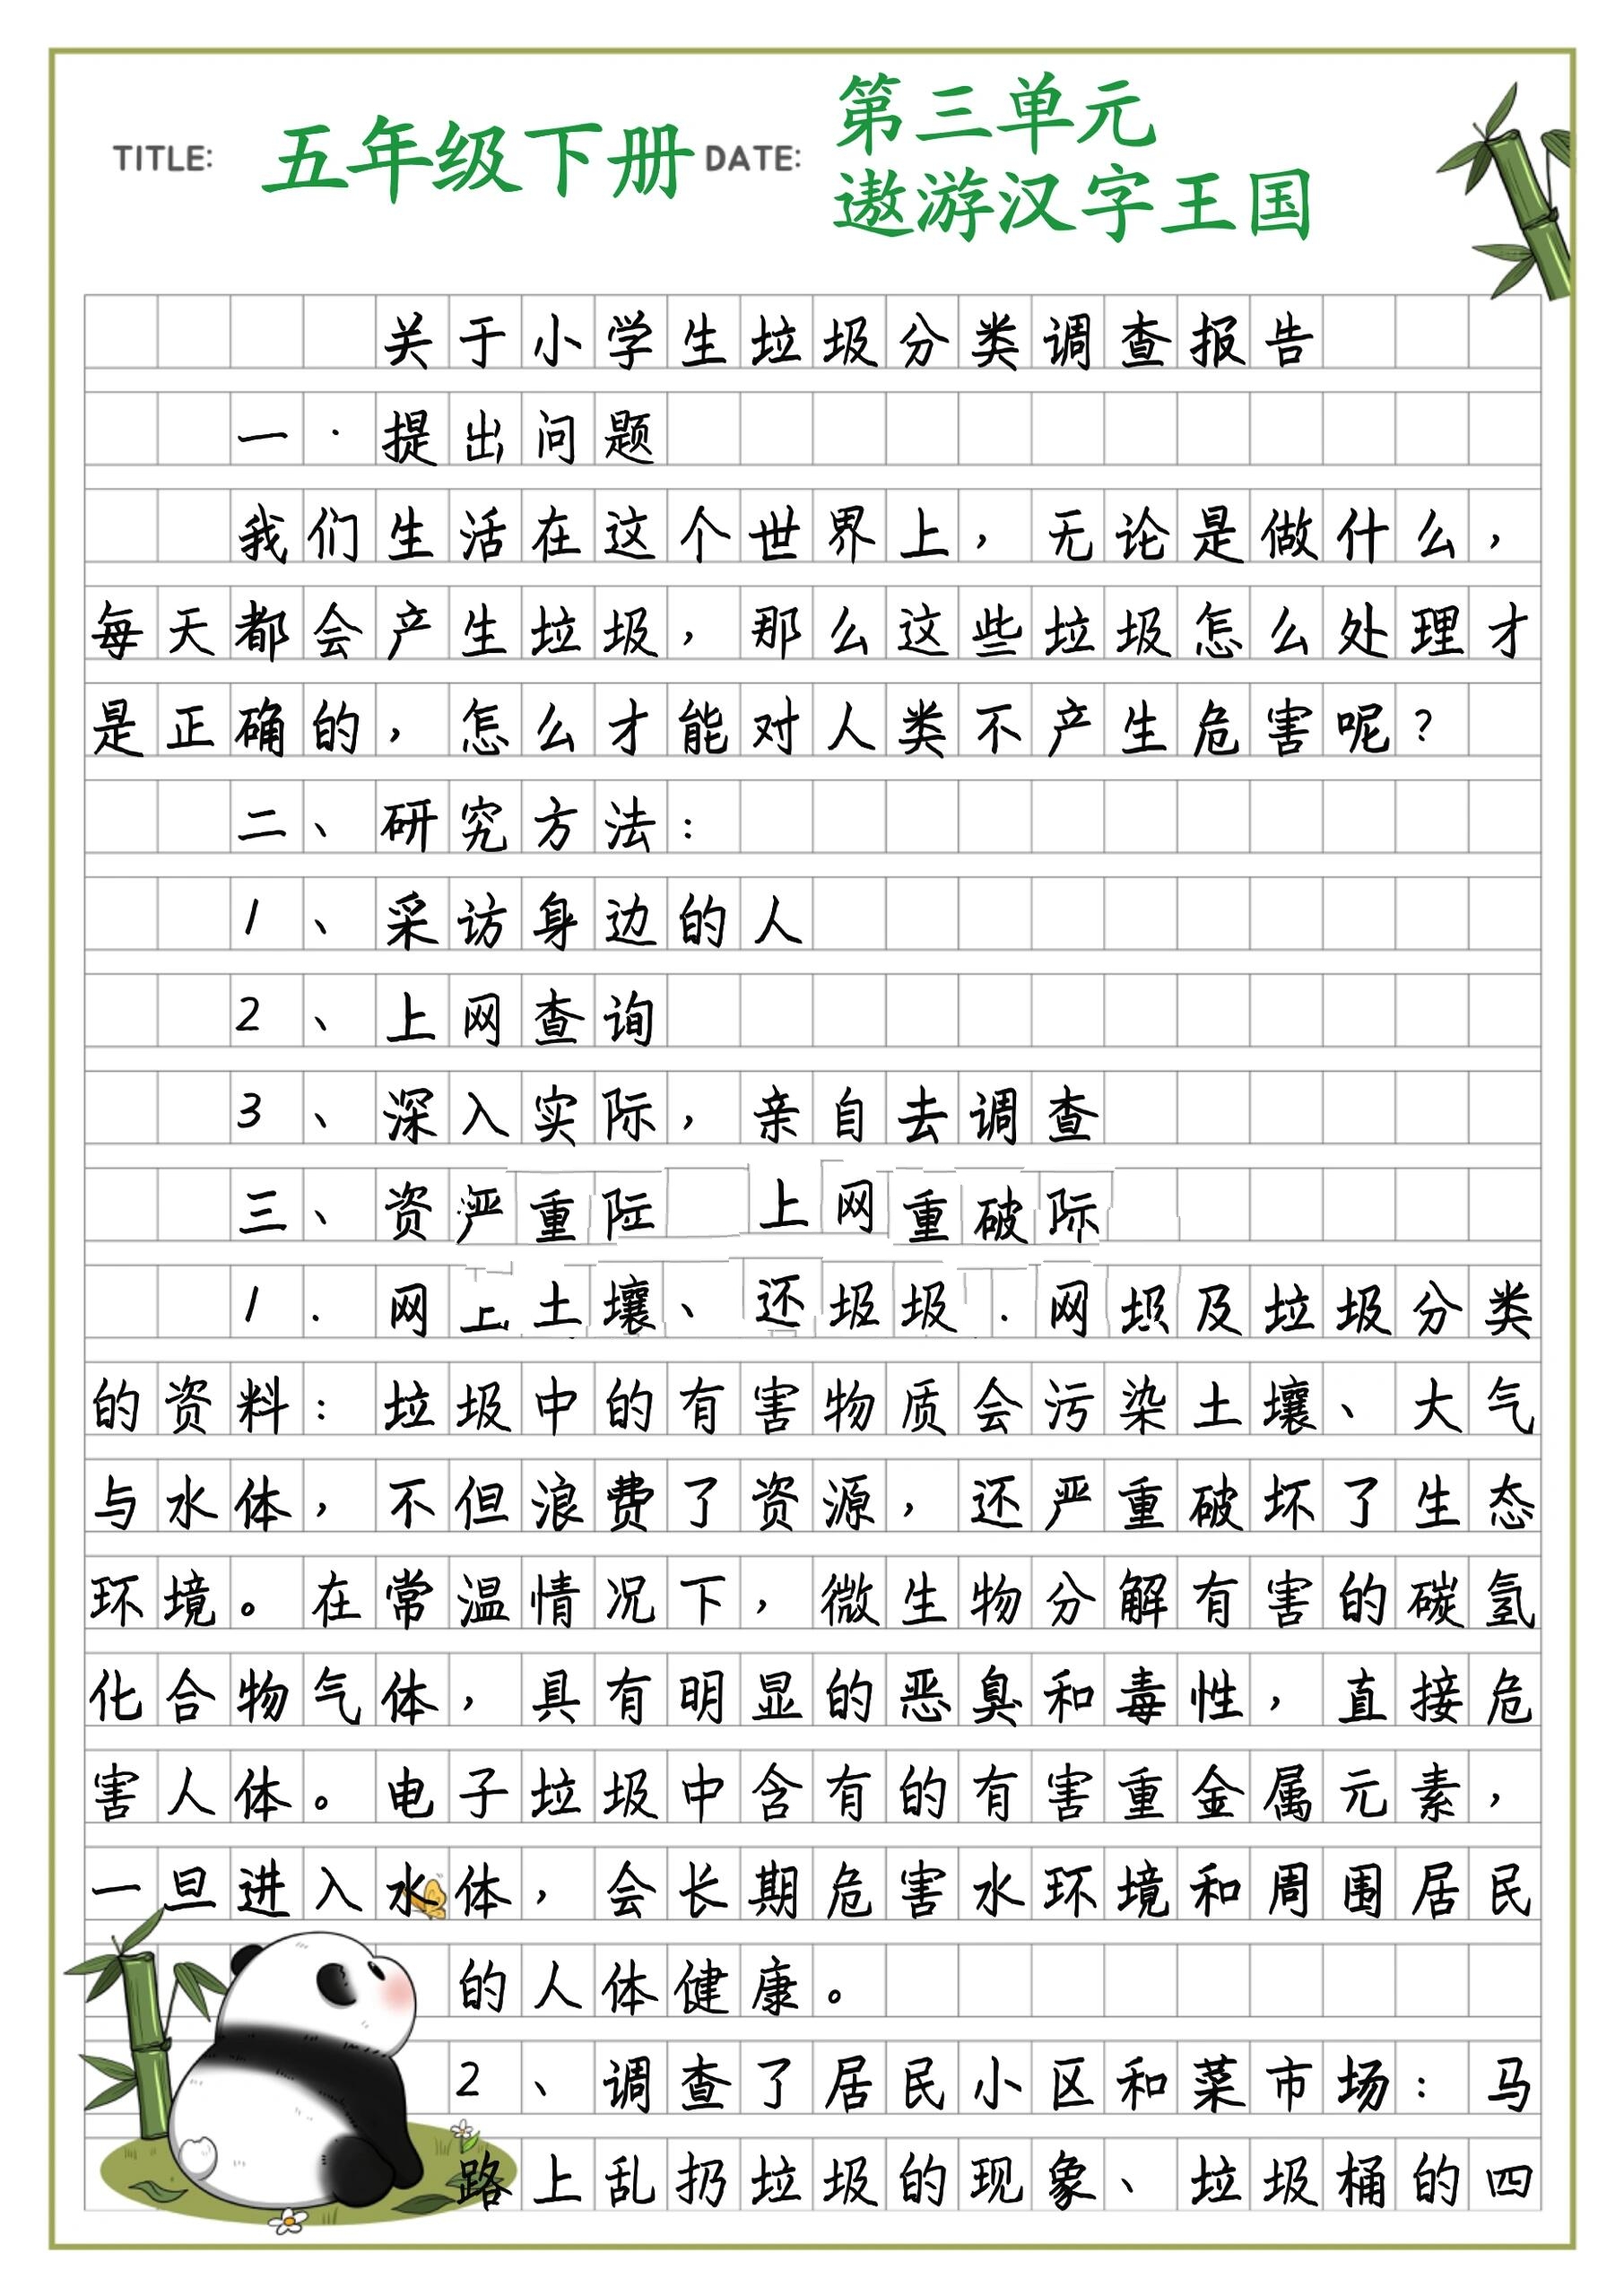 TITLE: 五年级下册 DATE: 第三单元
遨游汉字王国
关于小学生垃圾分类调查报告
一·提出问题
我们生活在这个世界上，无论是做什么，
每天都会产生垃圾，那么这些垃圾怎么处理才
是正确的，怎么才能对人类不产生危害呢？
二、研究方法：
1、采访身边的人
2、上网查询
3、深入实际，亲自去调查
三、资严重 上网重破际
1.网上土壤、还圾圾.网及垃圾分类
的资料：垃圾中的有害物质会污染土壤、大气
与水体，不但浪费了资源，还严重破坏了生态
环境。在常温情况下，微生物分解有害的碳氢
化合物气体，具有明显的恶臭和毒性，直接危
害人体。电子垃圾中含有的有害重金属元素，
一旦进入水体，会长期危害水环境和周围居民
的人体健康。
2、调查了居民小区和菜市场：马
路上乱扔垃圾的现象、垃圾桶的四